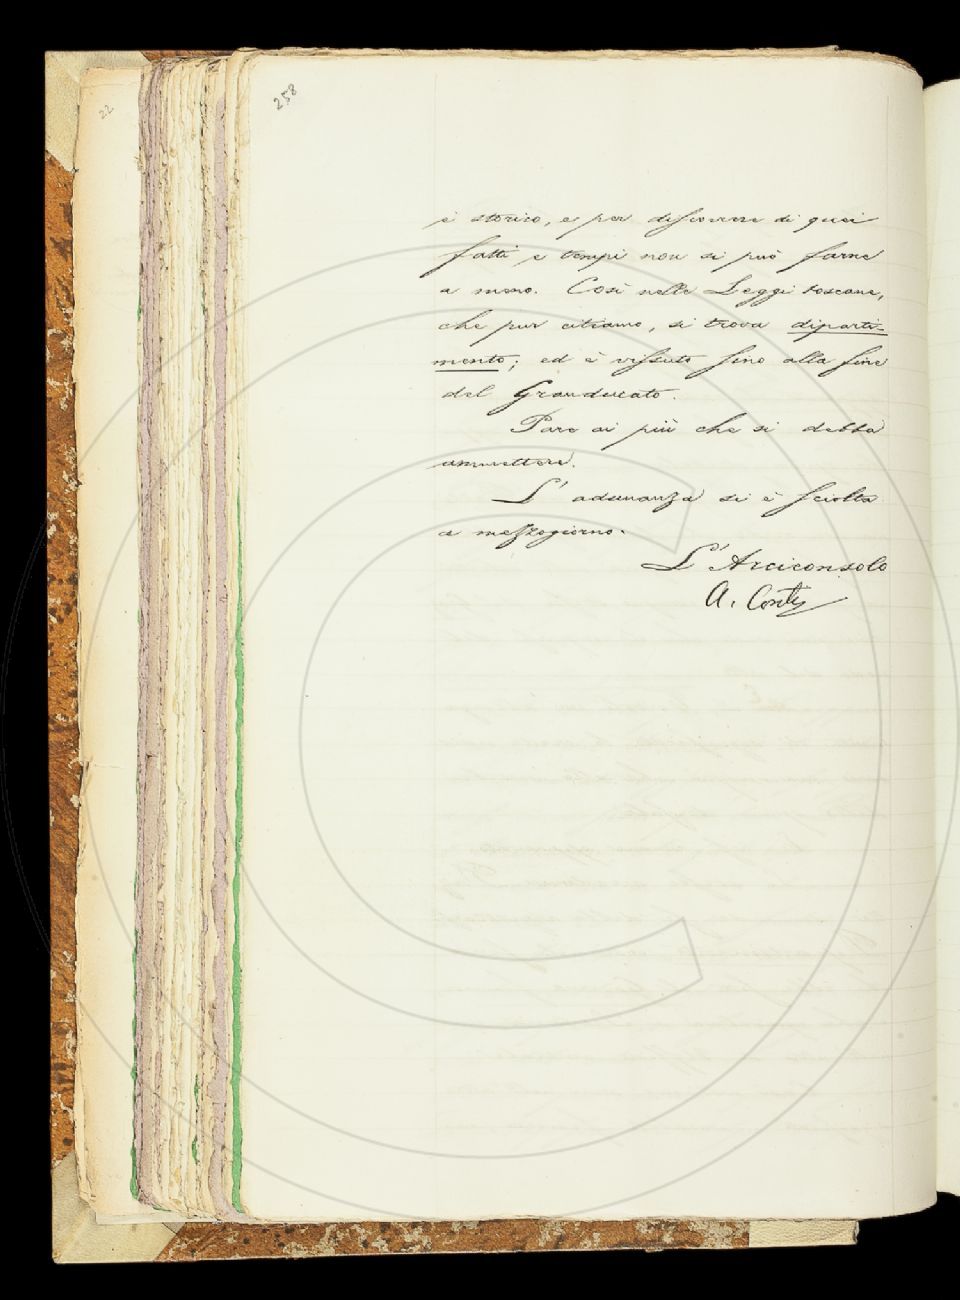 22
258
è storico, e per discorrere di quei
fatti e tempi non si può farne
a meno. Così nelle Leggi toscane,
che pur citiamo, si trova diparti-
mento; ed è vissuto fino alla fine
del Granducato.
Pare ai più che si debba
ammettere.
L'adunanza si è sciolta
a mezzogiorno.
L'Arciconsolo
A. Conti